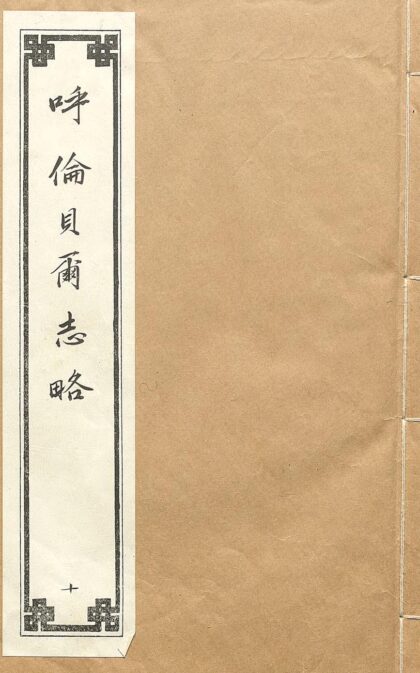 呼倫貝爾志略
十